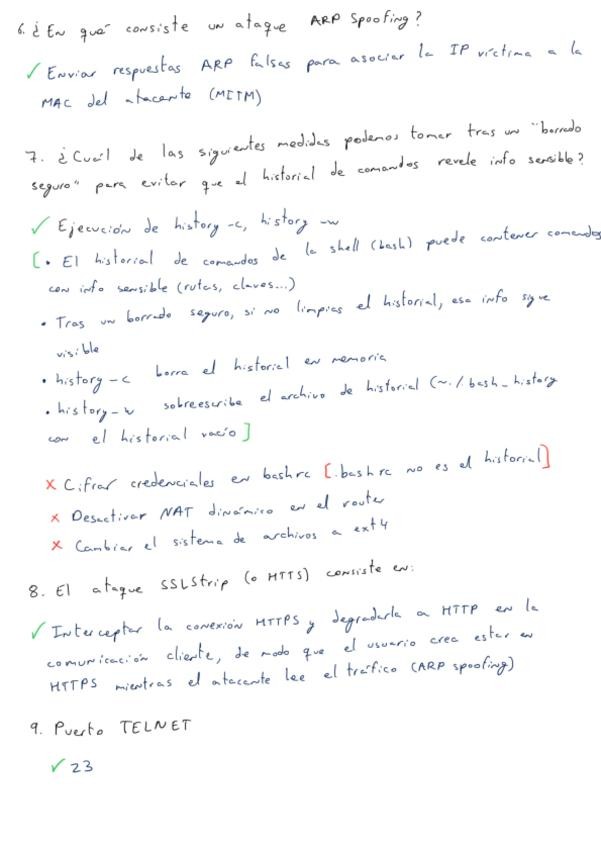 6. ¿En qué consiste un ataque ARP Spoofing?
✓ Enviar respuestas ARP falsas para asociar la IP víctima a la
MAC del atacante (MITM)
7. ¿Cuál de las siguientes medidas podemos tomar tras un "borrado
seguro" para evitar que el historial de comandos revele info sensible?
✓ Ejecución de history -c, history -w
[• El historial de comandos de la shell (bash) puede contener comandos
con info sensible (rutas, claves...)
• Tras un borrado seguro, si no limpias el historial, esa info sigue
visible
• history -c borra el historial en memoria
• history -w sobreescribe el archivo de historial (~./bash_history
con el historial vacío]
x Cifrar credenciales en bashrc [.bashrc no es el historial]
x Desactivar NAT dinámico en el router
x Cambiar el sistema de archivos a ext4
8. El ataque SSLStrip (o HTTS) consiste en:
✓ Interceptar la conexión HTTPS y degradarla a HTTP en la
comunicación cliente, de modo que el usuario crea estar en
HTTPS mientras el atacante lee el tráfico (ARP spoofing)
9. Puerto TELNET
✓ 23